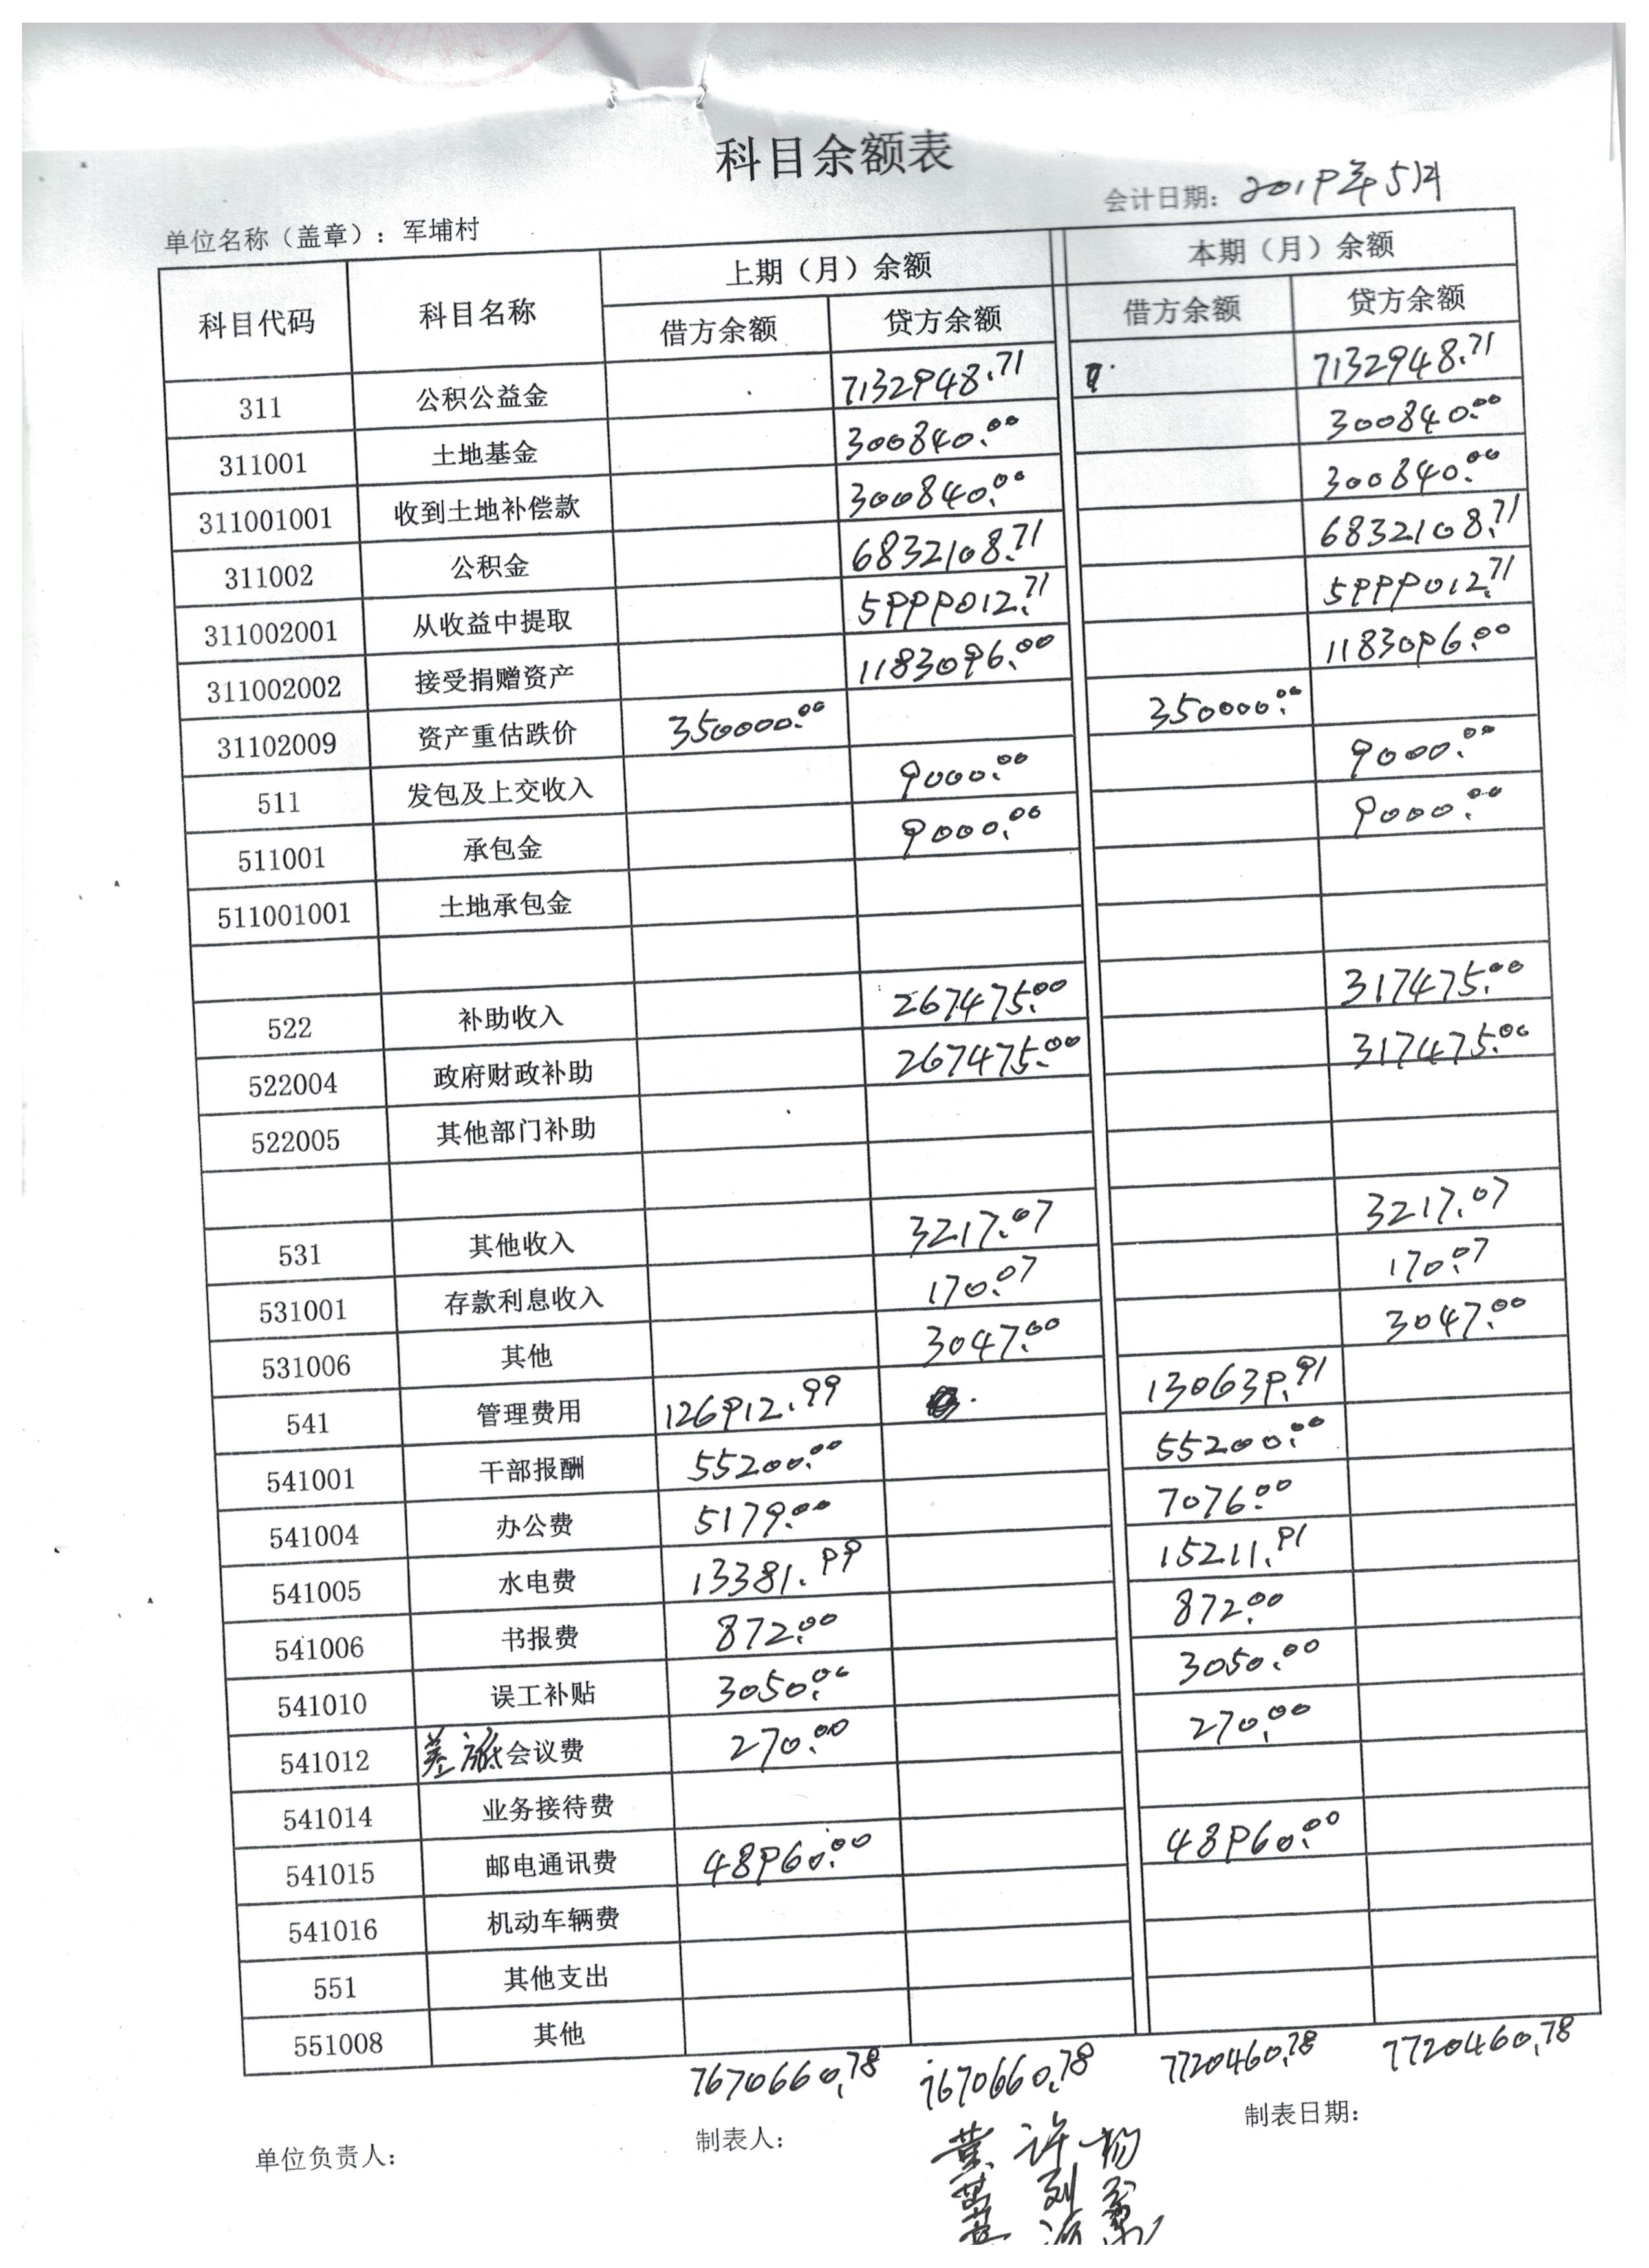 科目余额表
会计日期：2019年5月
单位名称（盖章）：军埔村
科目代码 科目名称 上期（月）余额 本期（月）余额
借方余额 贷方余额 借方余额 贷方余额
311 公积公益金 7132948.71 7132948.71
311001 土地基金 300840.00 300840.00
311001001 收到土地补偿款 300840.00 300840.00
311002 公积金 6832108.71 6832108.71
311002001 从收益中提取 5999012.71 5999012.71
311002002 接受捐赠资产 1183096.00 1183096.00
31102009 资产重估跌价 350000.00 350000.00
511 发包及上交收入 9000.00 9000.00
511001 承包金 9000.00 9000.00
511001001 土地承包金
522 补助收入 267475.00 317475.00
522004 政府财政补助 267475.00 317475.00
522005 其他部门补助
531 其他收入 3217.07 3217.07
531001 存款利息收入 170.07 170.07
531006 其他 3047.00 3047.00
541 管理费用 126912.99 130639.91
541001 干部报酬 55200.00 55200.00
541004 办公费 5179.00 7076.00
541005 水电费 13381.99 15211.91
541006 书报费 872.00 872.00
541010 误工补贴 3050.00 3050.00
541012 差旅会议费 270.00 270.00
541014 业务接待费
541015 邮电通讯费 48960.00 48960.00
541016 机动车辆费
551 其他支出
551008 其他
7670660.78 7670660.78 7720460.78 7720460.78
单位负责人： 制表人： 制表日期：
许 杨